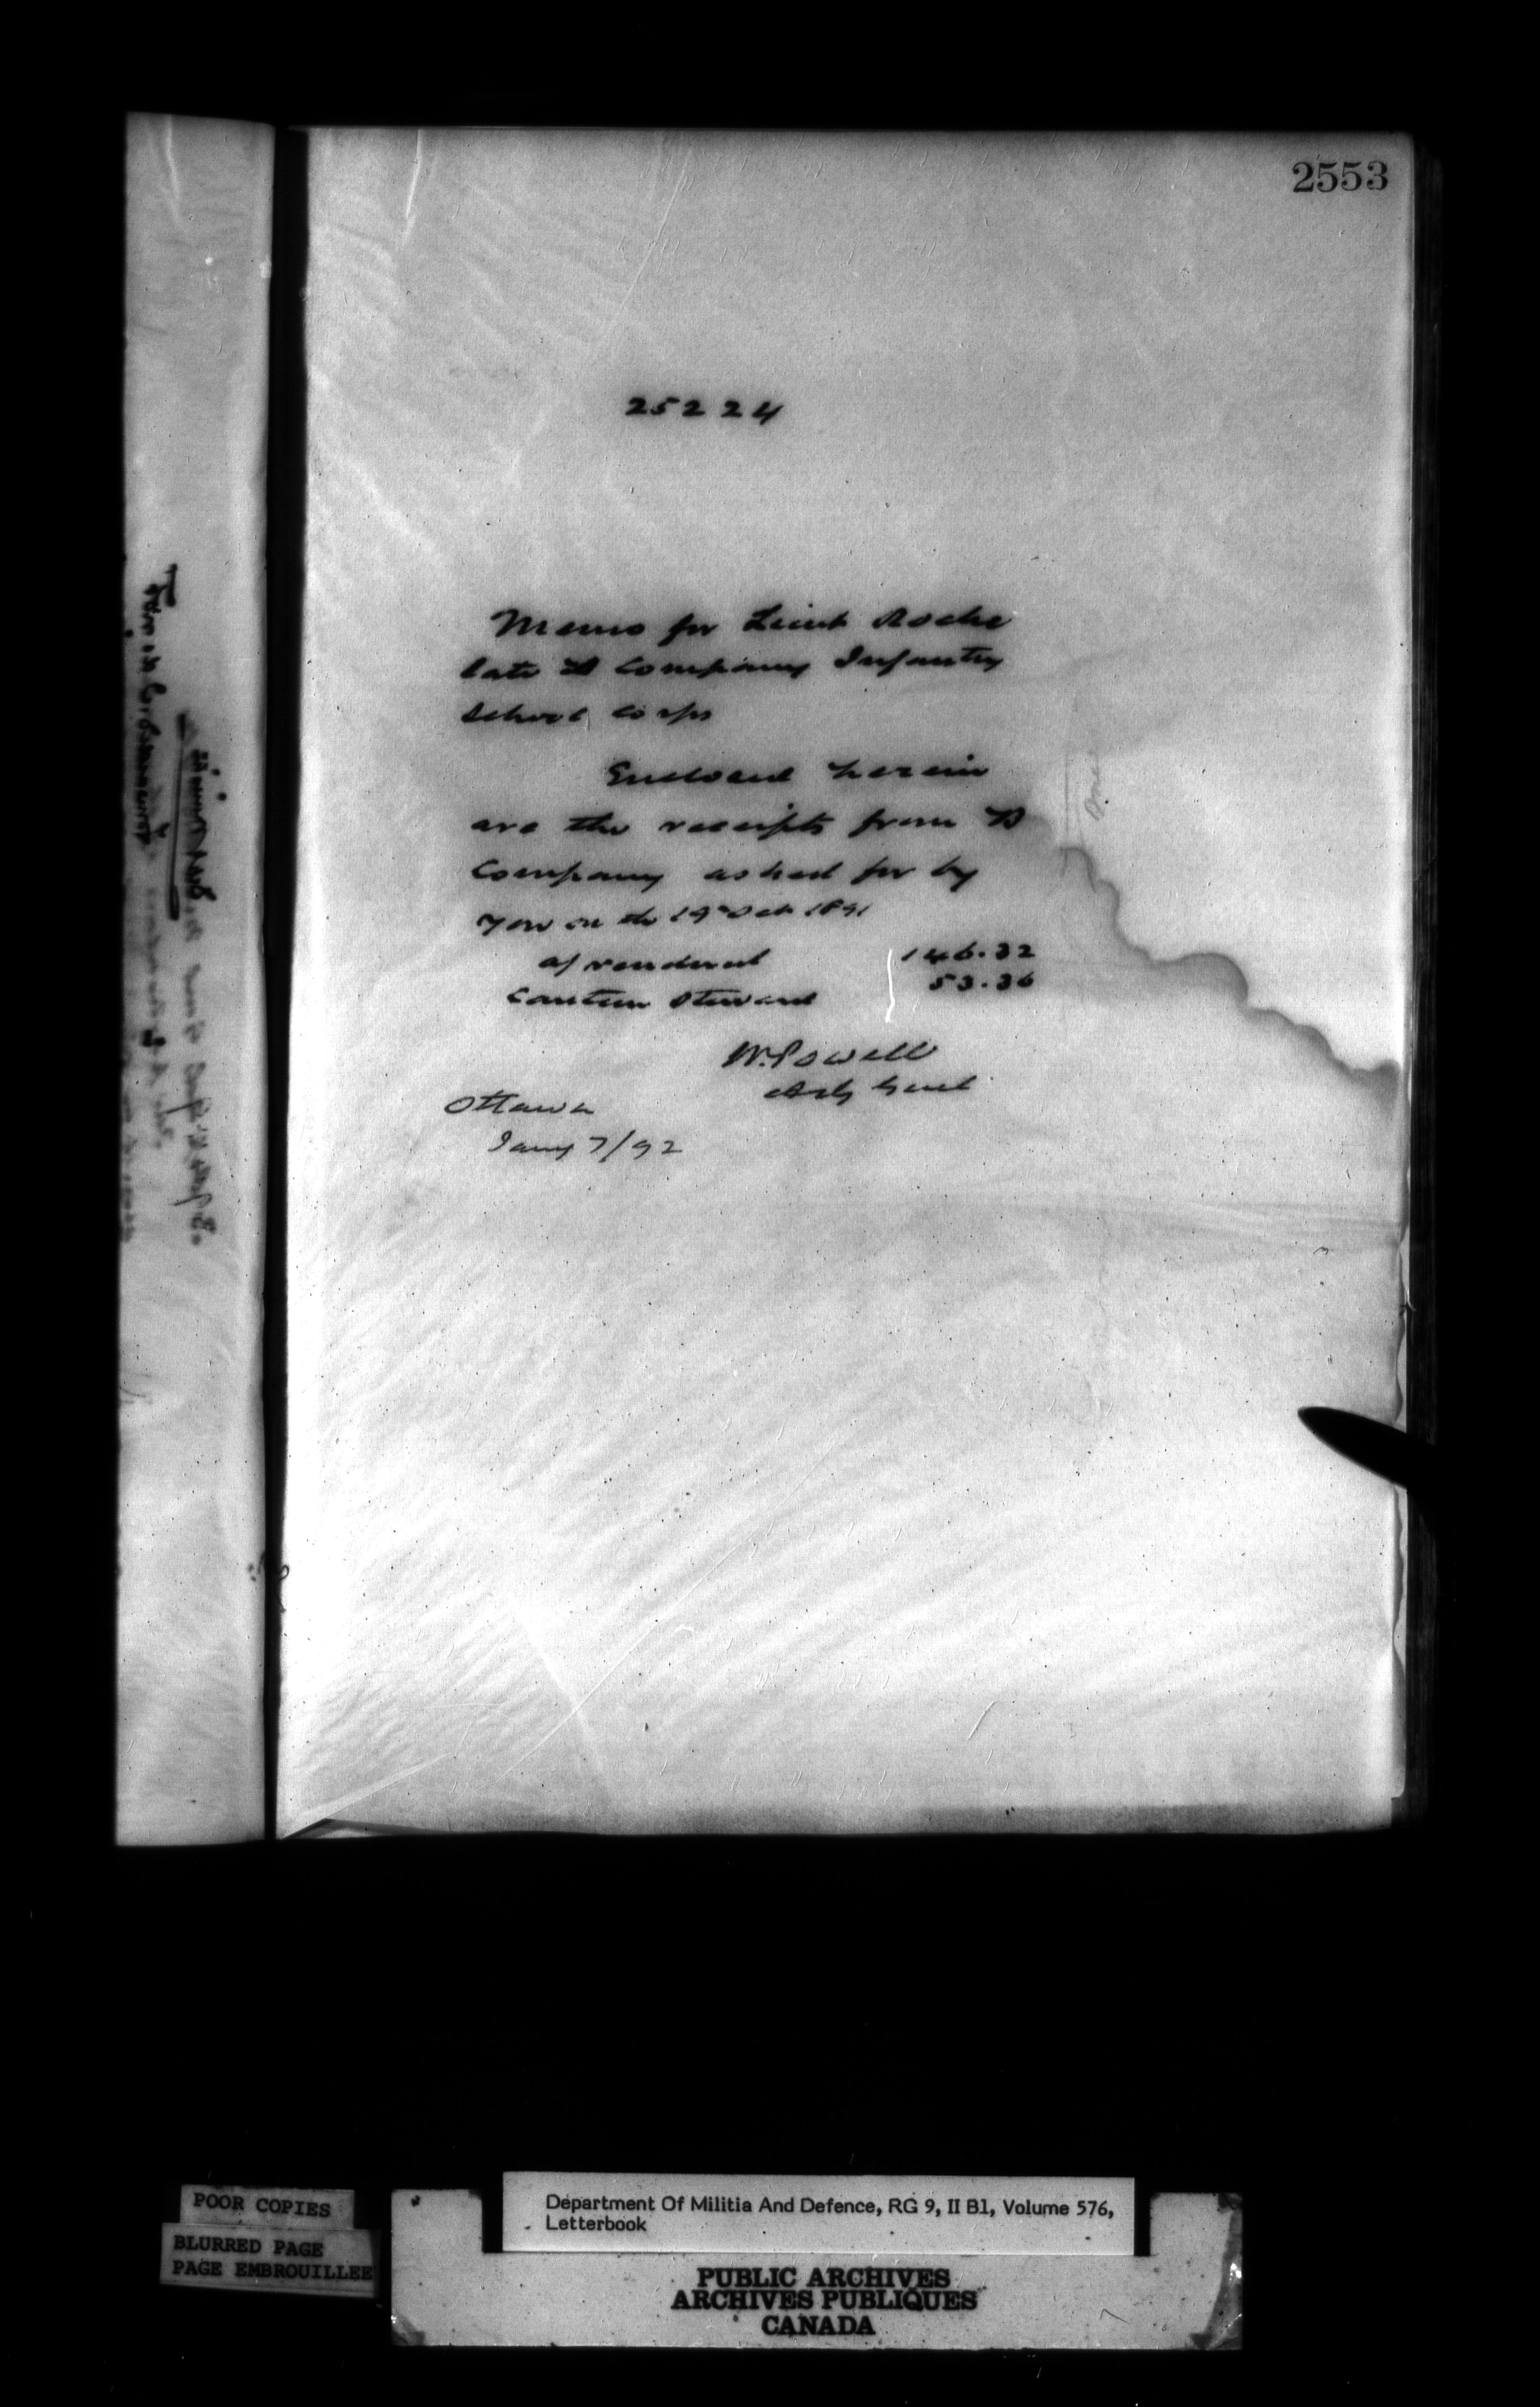 2553
25224
Memo for Lieut Roche
late D Company Infantry
School Corps
Enclosed herein
are the receipts from D
Company asked for by
you on the 19th Oct 1891
a/ rendered 146.32
Canteen Steward 53.36
W. Powell
Adj Genl
Ottawa
Jany 7/92
POOR COPIES
BLURRED PAGE
PAGE EMBROUILLEE
Department Of Militia And Defence, RG 9, II B1, Volume 576,
Letterbook
PUBLIC ARCHIVES
ARCHIVES PUBLIQUES
CANADA